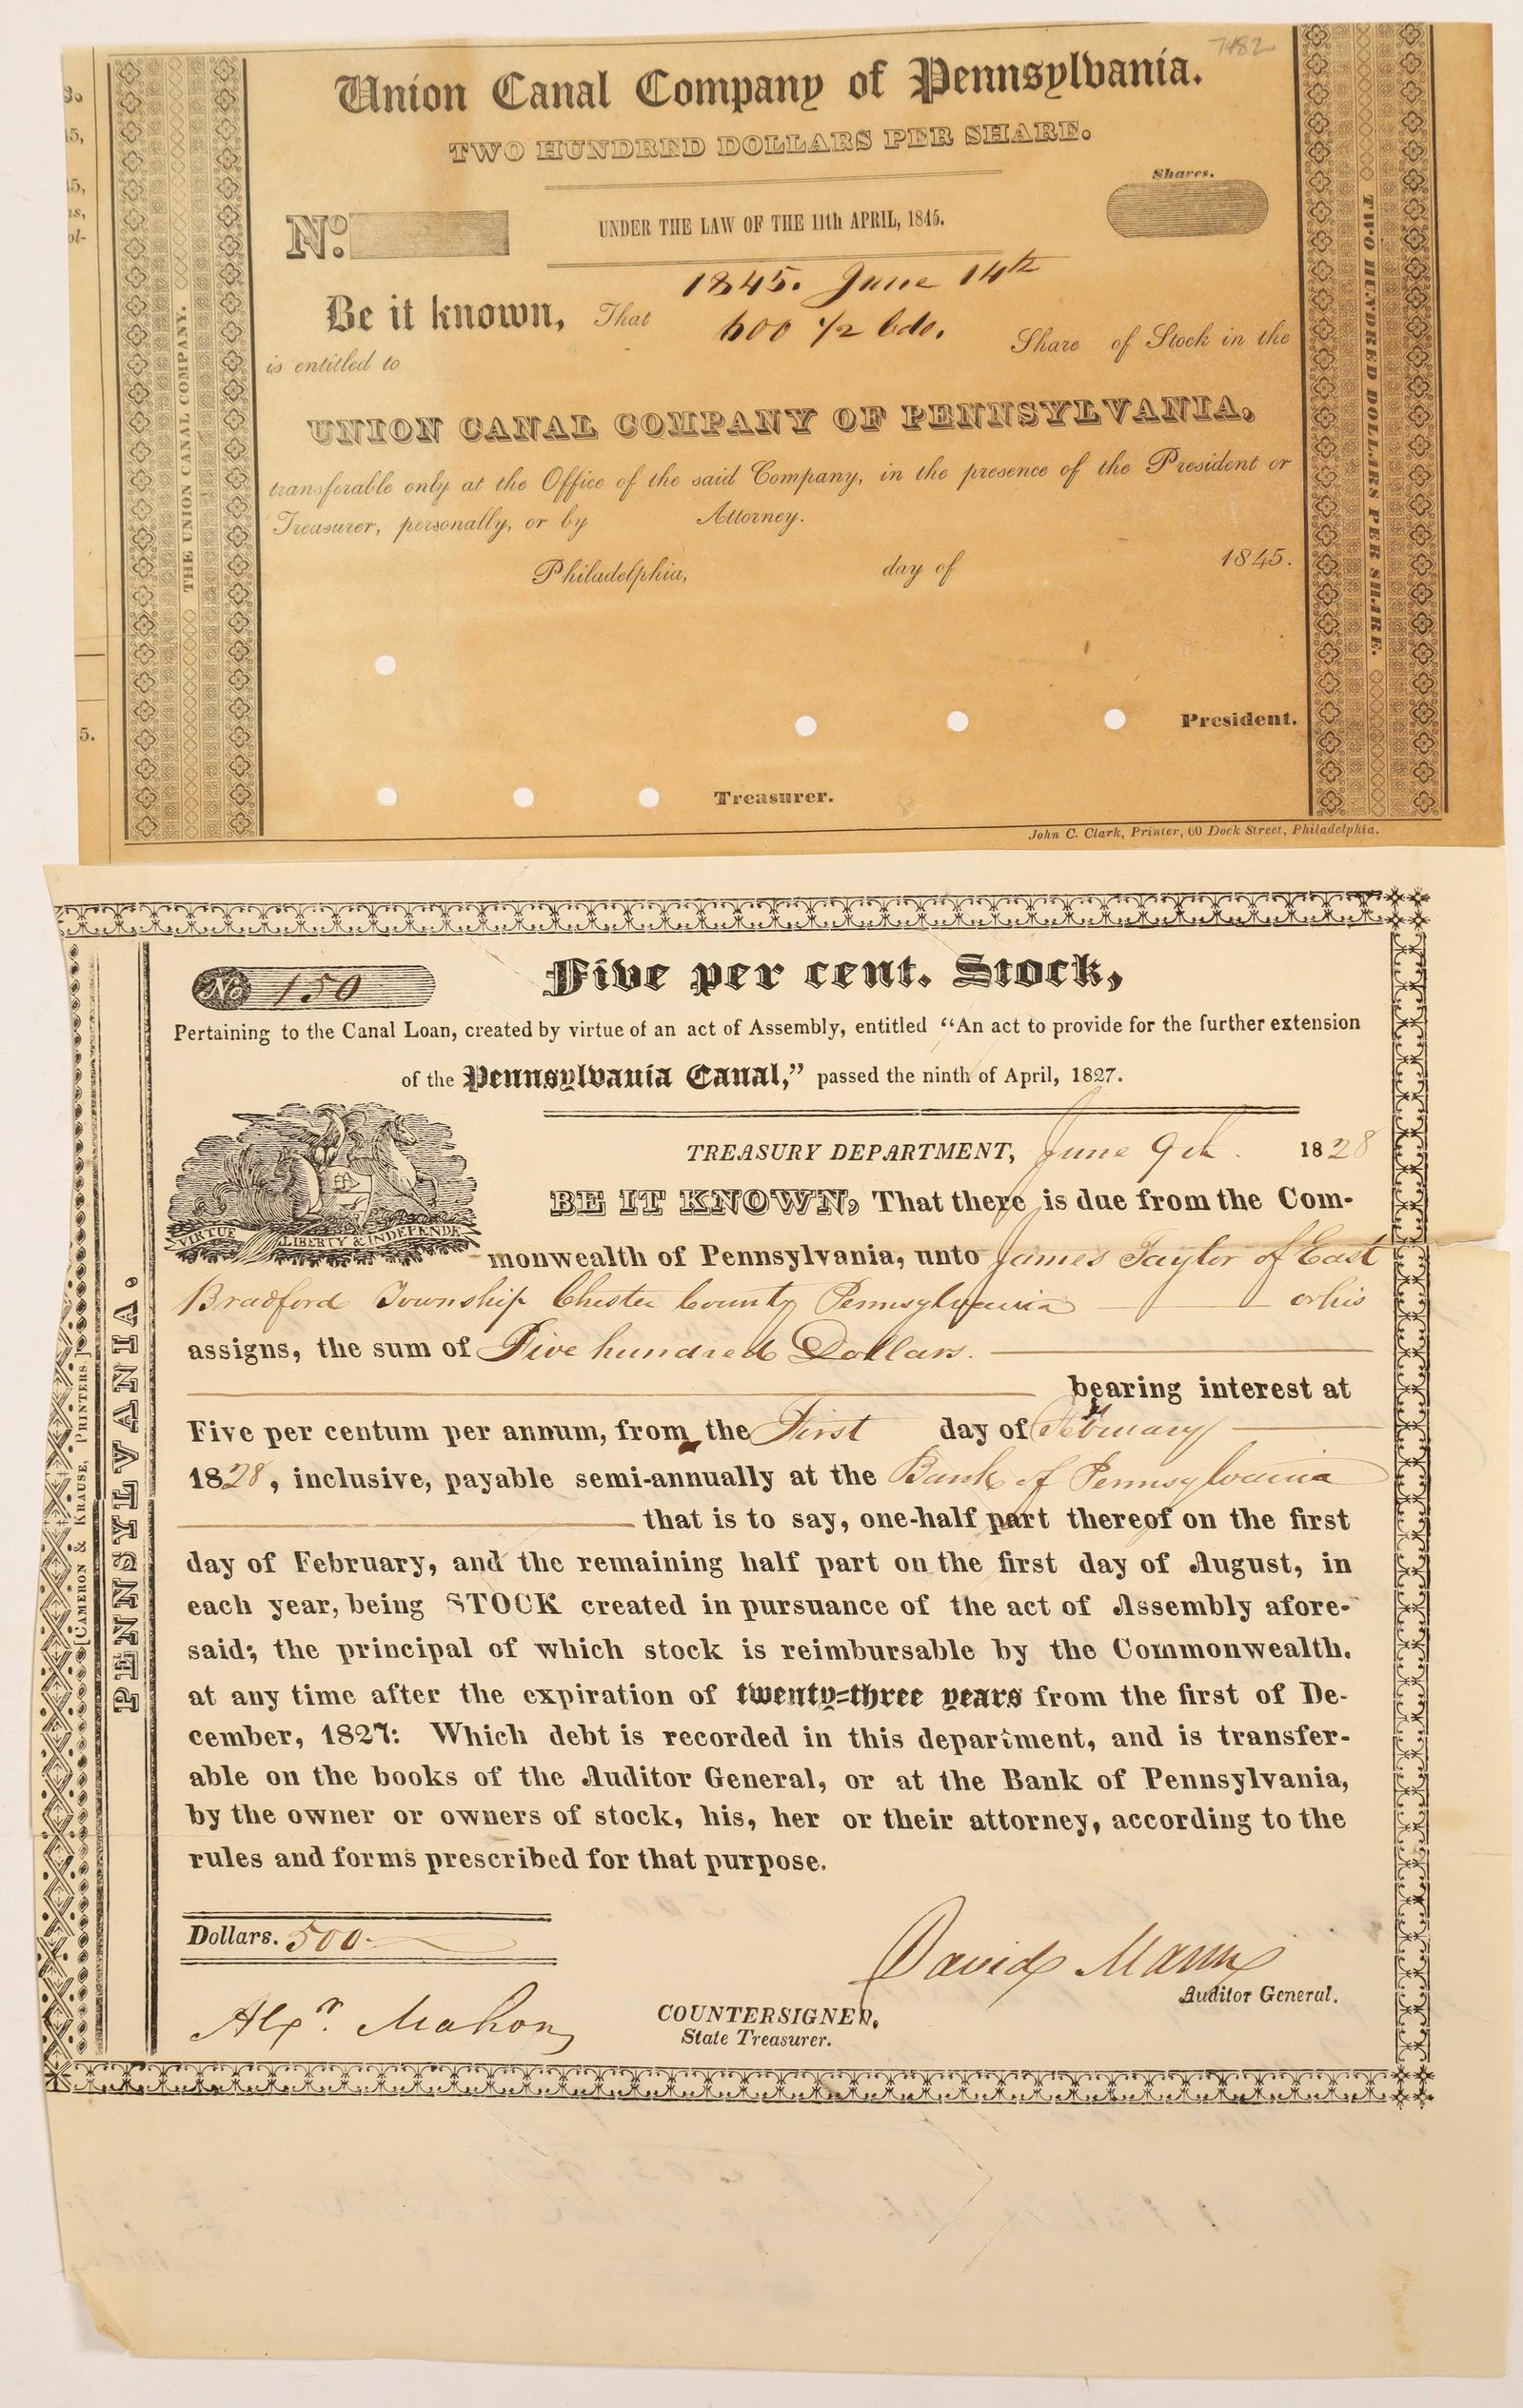 7482
Union Canal Company of Pennsylvania.
TWO HUNDRED DOLLARS PER SHARE.
Shares.
No.
UNDER THE LAW OF THE 11th APRIL, 1845.
1845. June 14th
Be it known, That
600 1/2 bds.
is entitled to
Share of Stock in the
UNION CANAL COMPANY OF PENNSYLVANIA,
transferable only at the Office of the said Company, in the presence of the President or
Treasurer, personally, or by Attorney.
Philadelphia, day of 1845.
President.
Treasurer.
John C. Clark, Printer, 60 Dock Street, Philadelphia.
THE UNION CANAL COMPANY.
TWO HUNDRED DOLLARS PER SHARE.
15,
15,
ol-
5.
No 150
Five per cent. Stock,
Pertaining to the Canal Loan, created by virtue of an act of Assembly, entitled "An act to provide for the further extension
of the Pennsylvania Canal," passed the ninth of April, 1827.
TREASURY DEPARTMENT, June 9th. 1828
VIRTUE LIBERTY & INDEPENDE
BE IT KNOWN, That there is due from the Com-
monwealth of Pennsylvania, unto James Taylor of East
Bradford Township Chester County Pennsylvania or his
assigns, the sum of Five hundred Dollars.
bearing interest at
Five per centum per annum, from the First day of February
1828, inclusive, payable semi-annually at the Bank of Pennsylvania
that is to say, one-half part thereof on the first
day of February, and the remaining half part on the first day of August, in
each year, being STOCK created in pursuance of the act of Assembly afore-
said; the principal of which stock is reimbursable by the Commonwealth.
at any time after the expiration of twenty-three years from the first of De-
cember, 1827: Which debt is recorded in this department, and is transfer-
able on the books of the Auditor General, or at the Bank of Pennsylvania,
by the owner or owners of stock, his, her or their attorney, according to the
rules and forms prescribed for that purpose.
Dollars. 500
David Mann
Auditor General.
Alexr. Mahon
COUNTERSIGNED,
State Treasurer.
PENNSYLVANIA.
[CAMERON & KRAUSE, PRINTERS.]